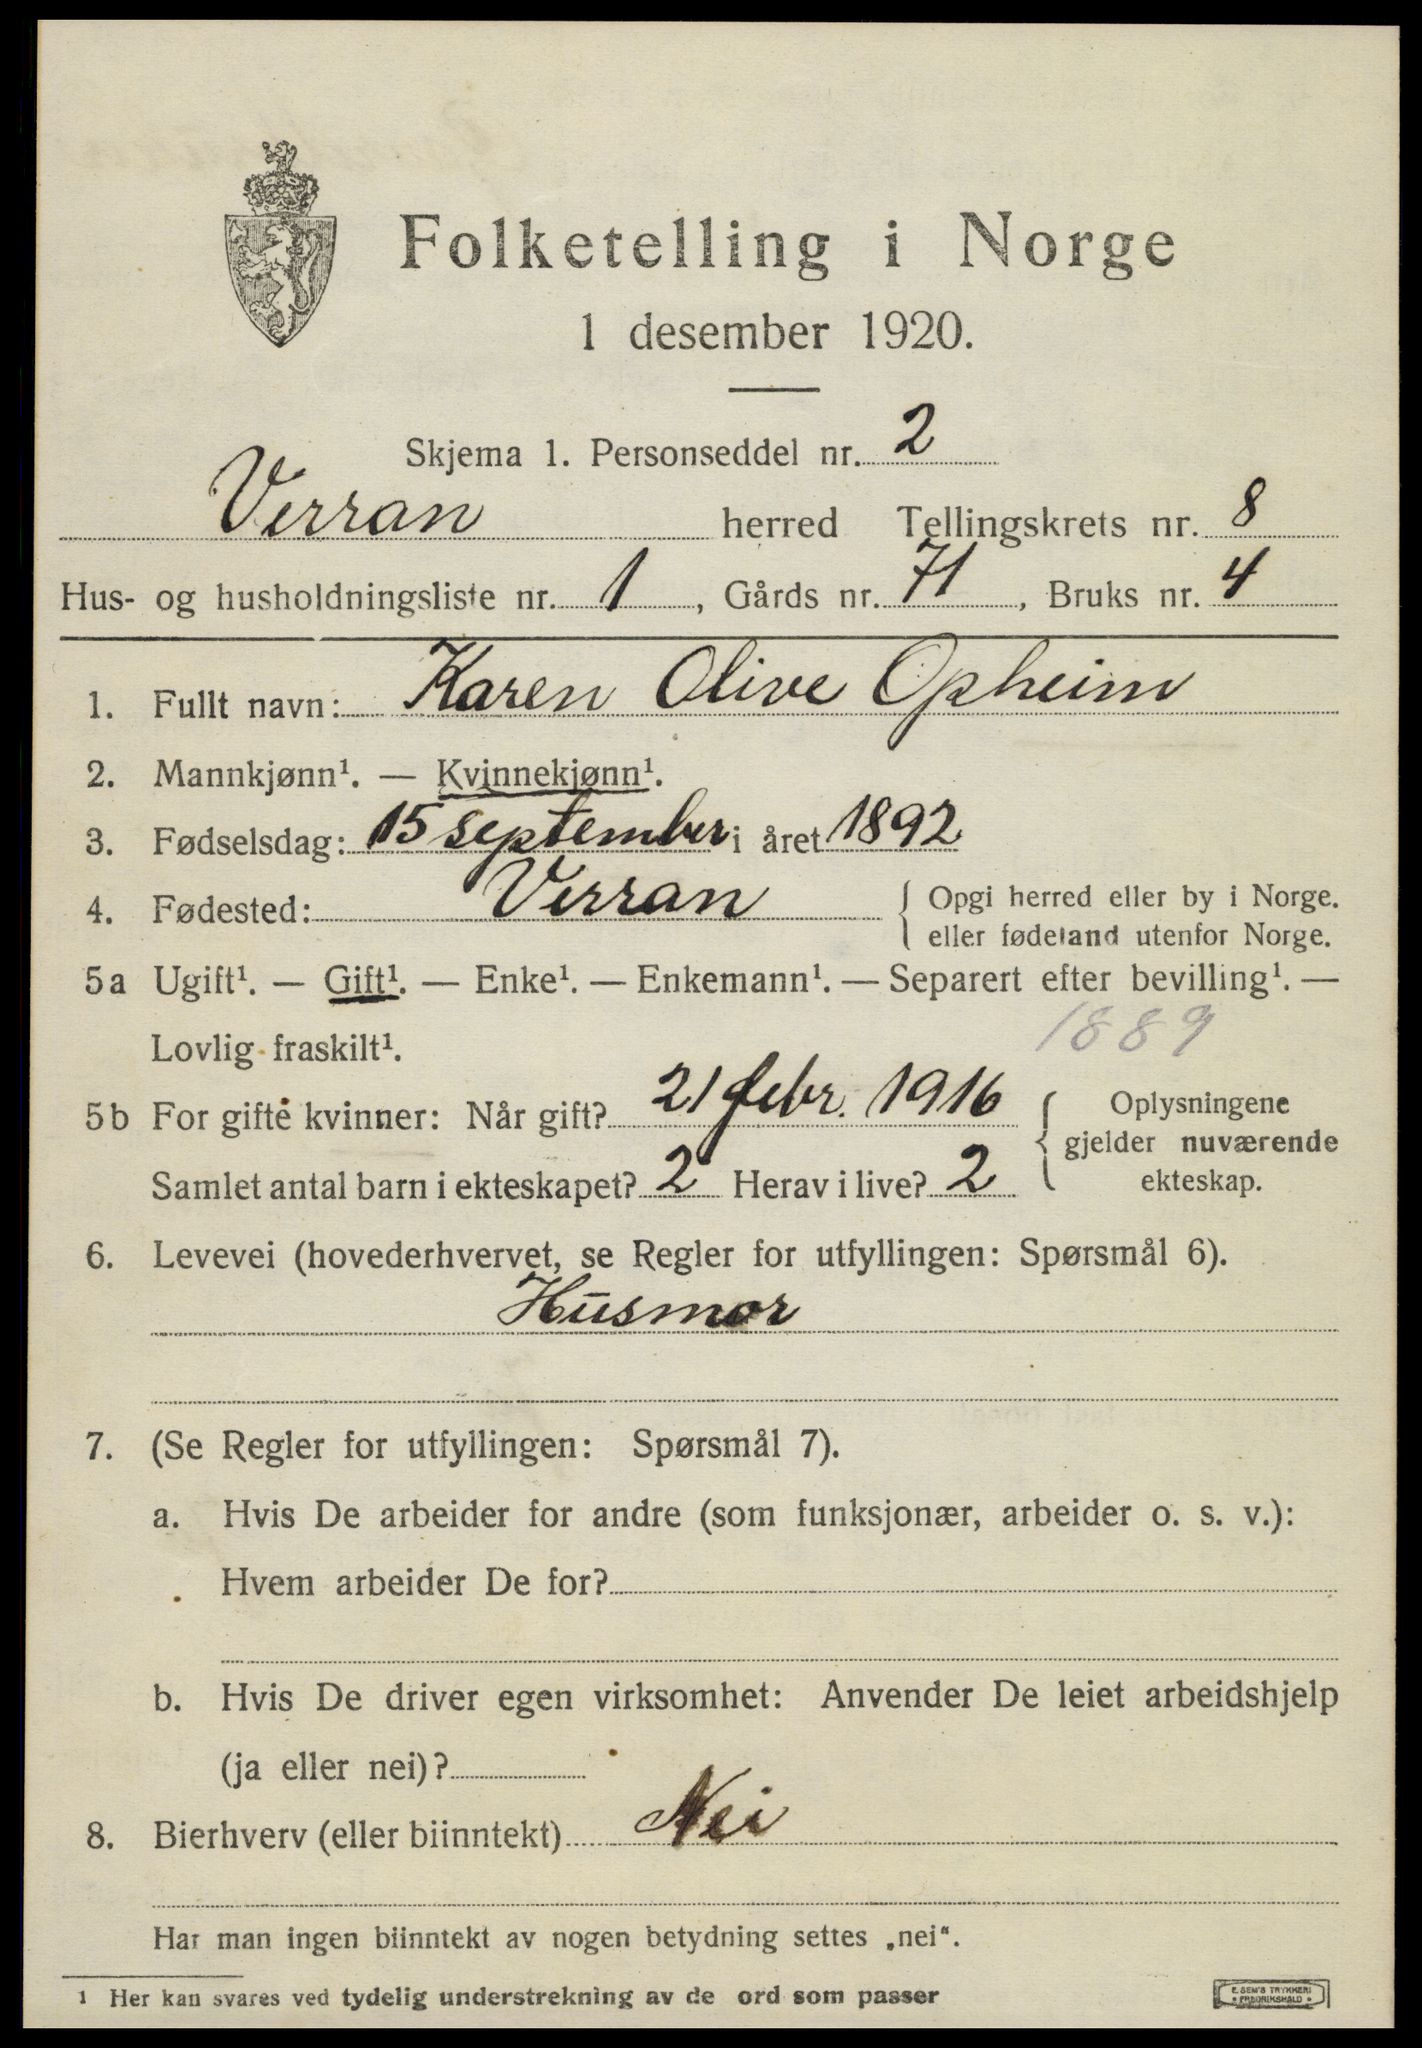 Folketelling i Norge
1 desember 1920.
Skjema 1. Personseddel nr. 2
Verran herred Tellingskrets nr. 8
Hus- og husholdningsliste nr. 1, Gårds nr. 71, Bruks nr. 4
1. Fullt navn: Karen Olive Opheim
2. Mannkjønn¹. — Kvinnekjønn¹.
3. Fødselsdag: 15 september i året 1892
4. Fødested: Verran { Opgi herred eller by i Norge.
eller fødeland utenfor Norge.
5a Ugift¹. — Gift¹. — Enke¹. — Enkemann¹. — Separert efter bevilling¹. —
Lovlig fraskilt¹. 1889
5b For gifte kvinner: Når gift? 21 febr. 1916 { Oplysningene
gjelder nuværende
Samlet antal barn i ekteskapet? 2 Herav i live? 2 ekteskap.
6. Levevei (hovederhvervet, se Regler for utfyllingen: Spørsmål 6).
Husmor
7. (Se Regler for utfyllingen: Spørsmål 7).
a. Hvis De arbeider for andre (som funksjonær, arbeider o. s. v.):
Hvem arbeider De for?
b. Hvis De driver egen virksomhet: Anvender De leiet arbeidshjelp
(ja eller nei)?
8. Bierhverv (eller biinntekt) Nei
Har man ingen biinntekt av nogen betydning settes „nei“.
1 Her kan svares ved tydelig understrekning av de ord som passer
E. SEM'S TRYKKERI
• FREDRIKSHALD •